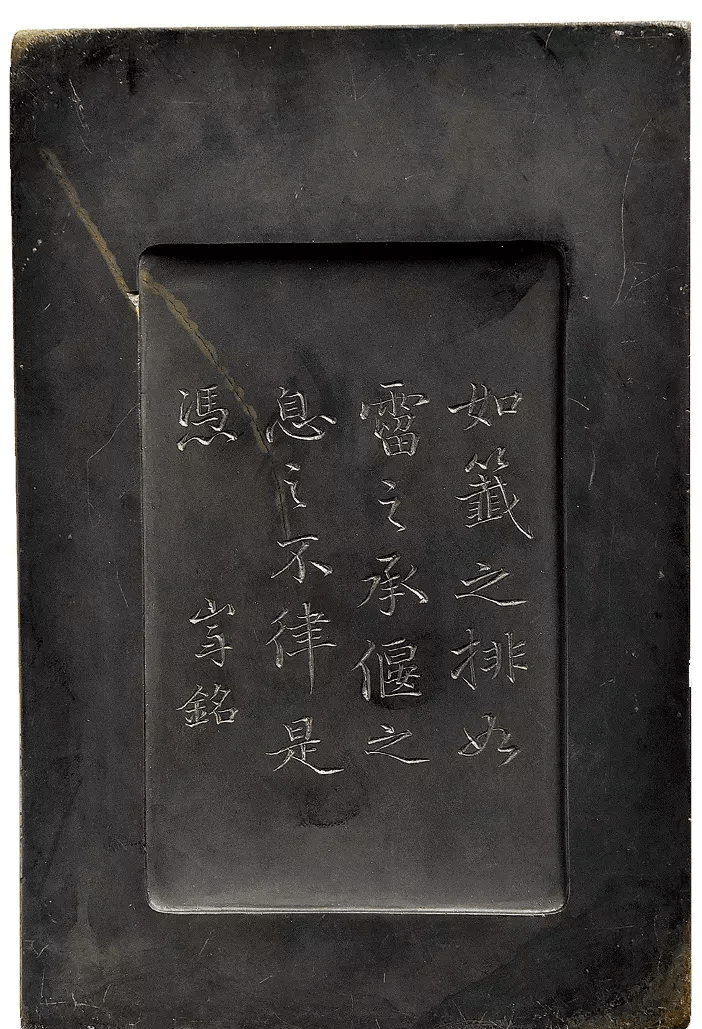 如籤之排如
霤之承偃之
息之不律是
馮 銘